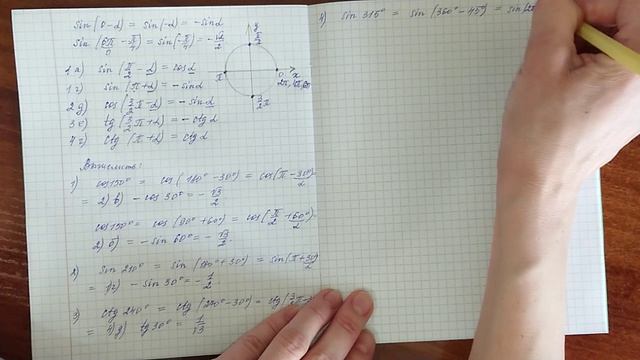 sin(0-α) = sin(-α) = -sinα
sin(6π/0 - π/4) = sin(-π/4) = -√2/2
y
π/2
π
0
x
2π, 4π, 6π
3/2π
1 а) sin(π/2 - α) = cosα
1 г) sin(π+α) = -sinα
2 д) cos(3/2π-α) = -sinα
3 е) tg(3/2π+α) = -ctgα
4 г) ctg(π+α) = ctgα
Вычислить:
1) cos150° = cos(180°-30°) = cos(π-30°)
= 2) в) -cos30° = -√3/2
cos150° = cos(90°+60°) = cos(π/2+60°)
2) б) = -sin60° = -√3/2
2) sin210° = sin(180°+30°) = sin(π+30°)
= 1г) -sin30° = -1/2
3) ctg240° = ctg(270°-30°) = ctg(3/2π-
= 4) д) tg30° = 1/√3
4) sin315° = sin(360°-45°) = sin(2π